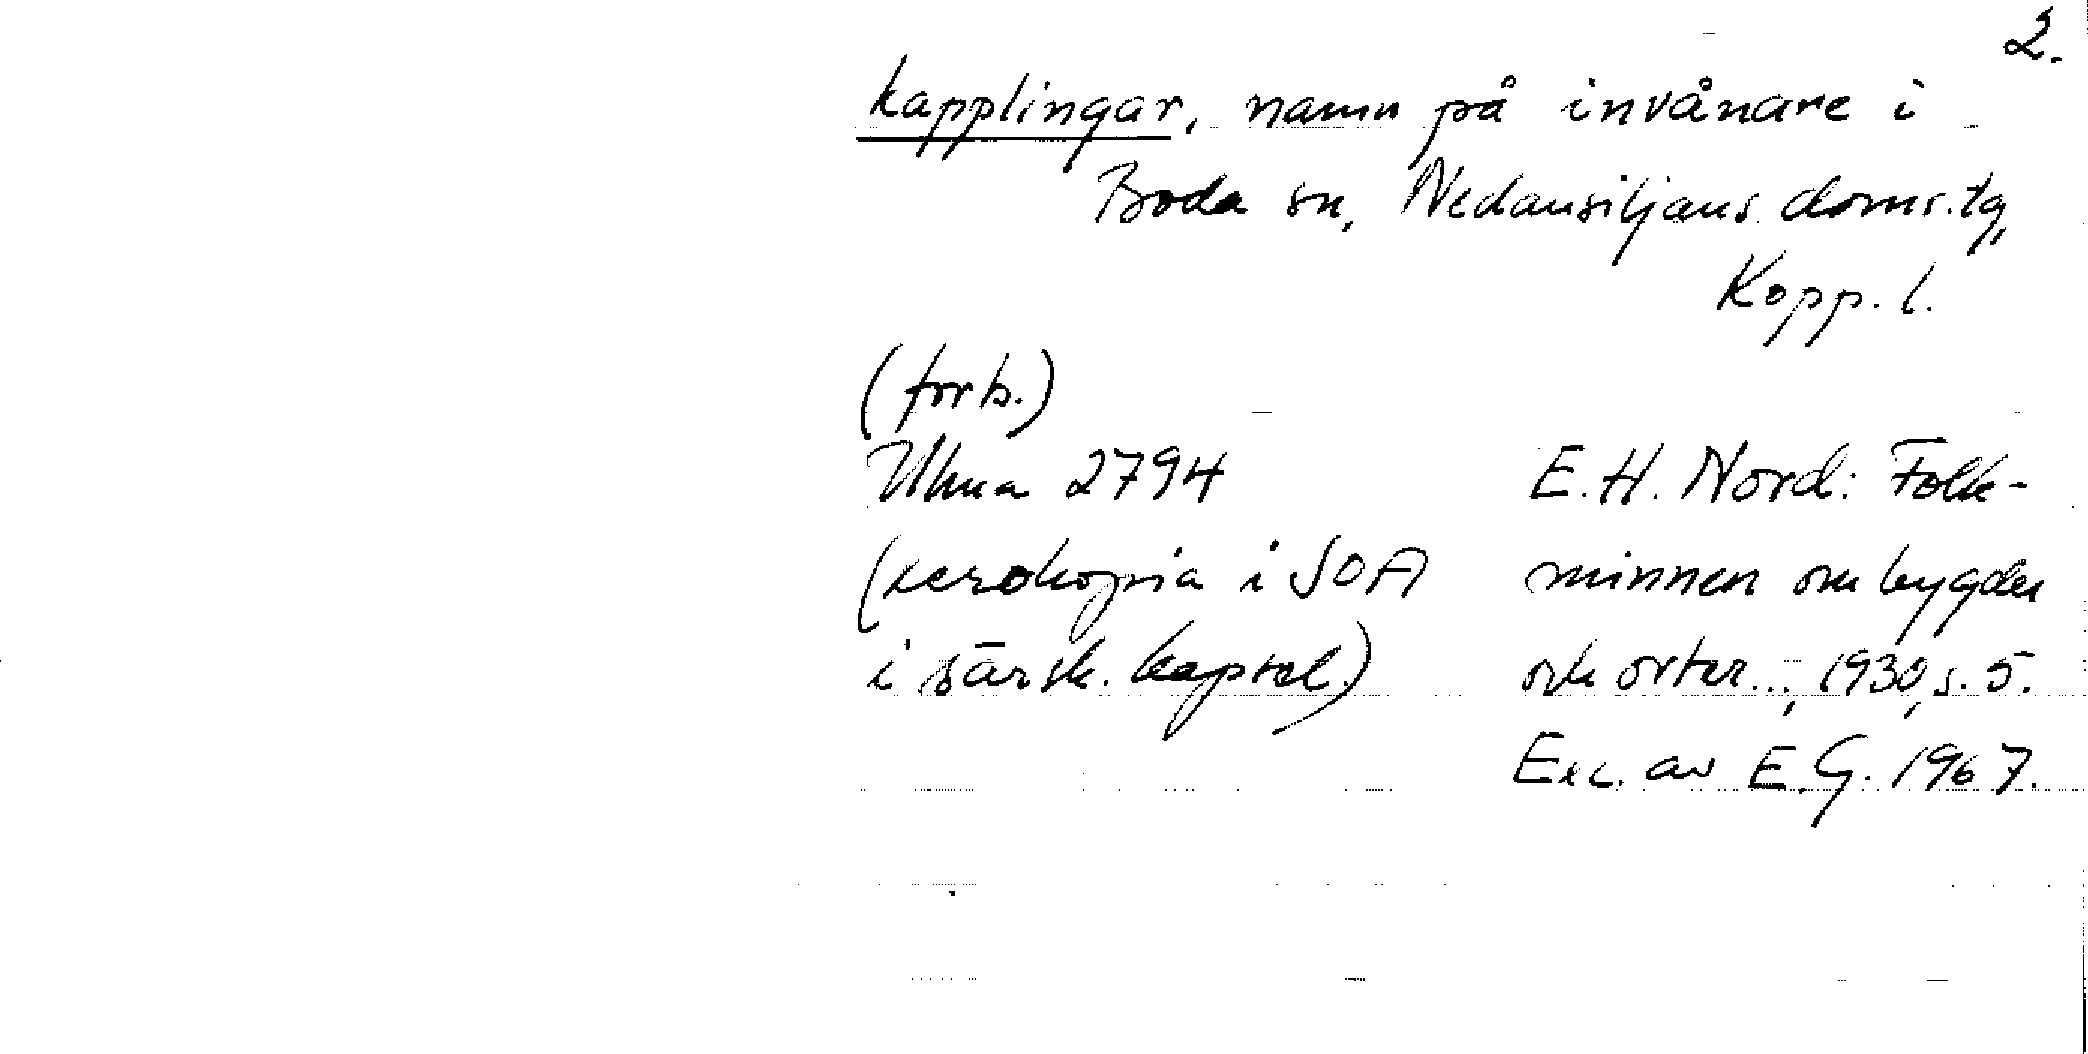 2.
kapplingar, namn på invånare i
Boda sn, Nedansiljans doms.tg,
Kopp. l.
(forts.)
Ulma 2794
(xerokopia i SOFI
i särsk. kapsel.)
E.H. Nord: Folk-
minnen om bygder
och orter..., 1930, s. 5.
Exc. av E.G. 1967.